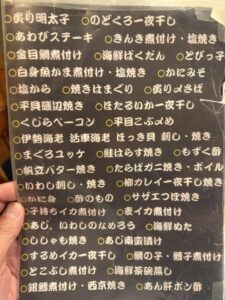 ○炙り明太子 ○のどくろ一夜干し
○あわびステーキ ○きんき煮付け・塩焼き
○金目鯛煮付け ○海鮮ばくだん ○とびっ子
○白身魚かま煮付け・塩焼き ○かにみそ
○塩から ○焼きはまぐり ○炙り〆さば
○平貝磯辺焼き ○ほたるいか一夜干し
○くじらベーコン ○平目こぶ〆め
○伊勢海老 活車海老 ほっき貝 刺し・焼き
○まぐろユッケ ○鮭はらす焼き ○もずく酢
○帆立バター焼き ○たらばガニ焼き・ボイル
○いわし刺し・焼き ○柳カレイ一夜干し焼き
○かに身 ○酢のもの ○サザエつぼ焼き
○子持ちイカ煮付け ○まイカ煮付け
○あじ、いわしのなめろう ○海鮮ぬた
○ししゃも焼き ○あじ南蛮漬け
○するめイカ一夜干し ○鯛の子・鱈子煮付け
○とこぶし煮付け ○海鮮茶碗蒸し
○銀鱈煮付け・西京焼き ○あん肝ポン酢